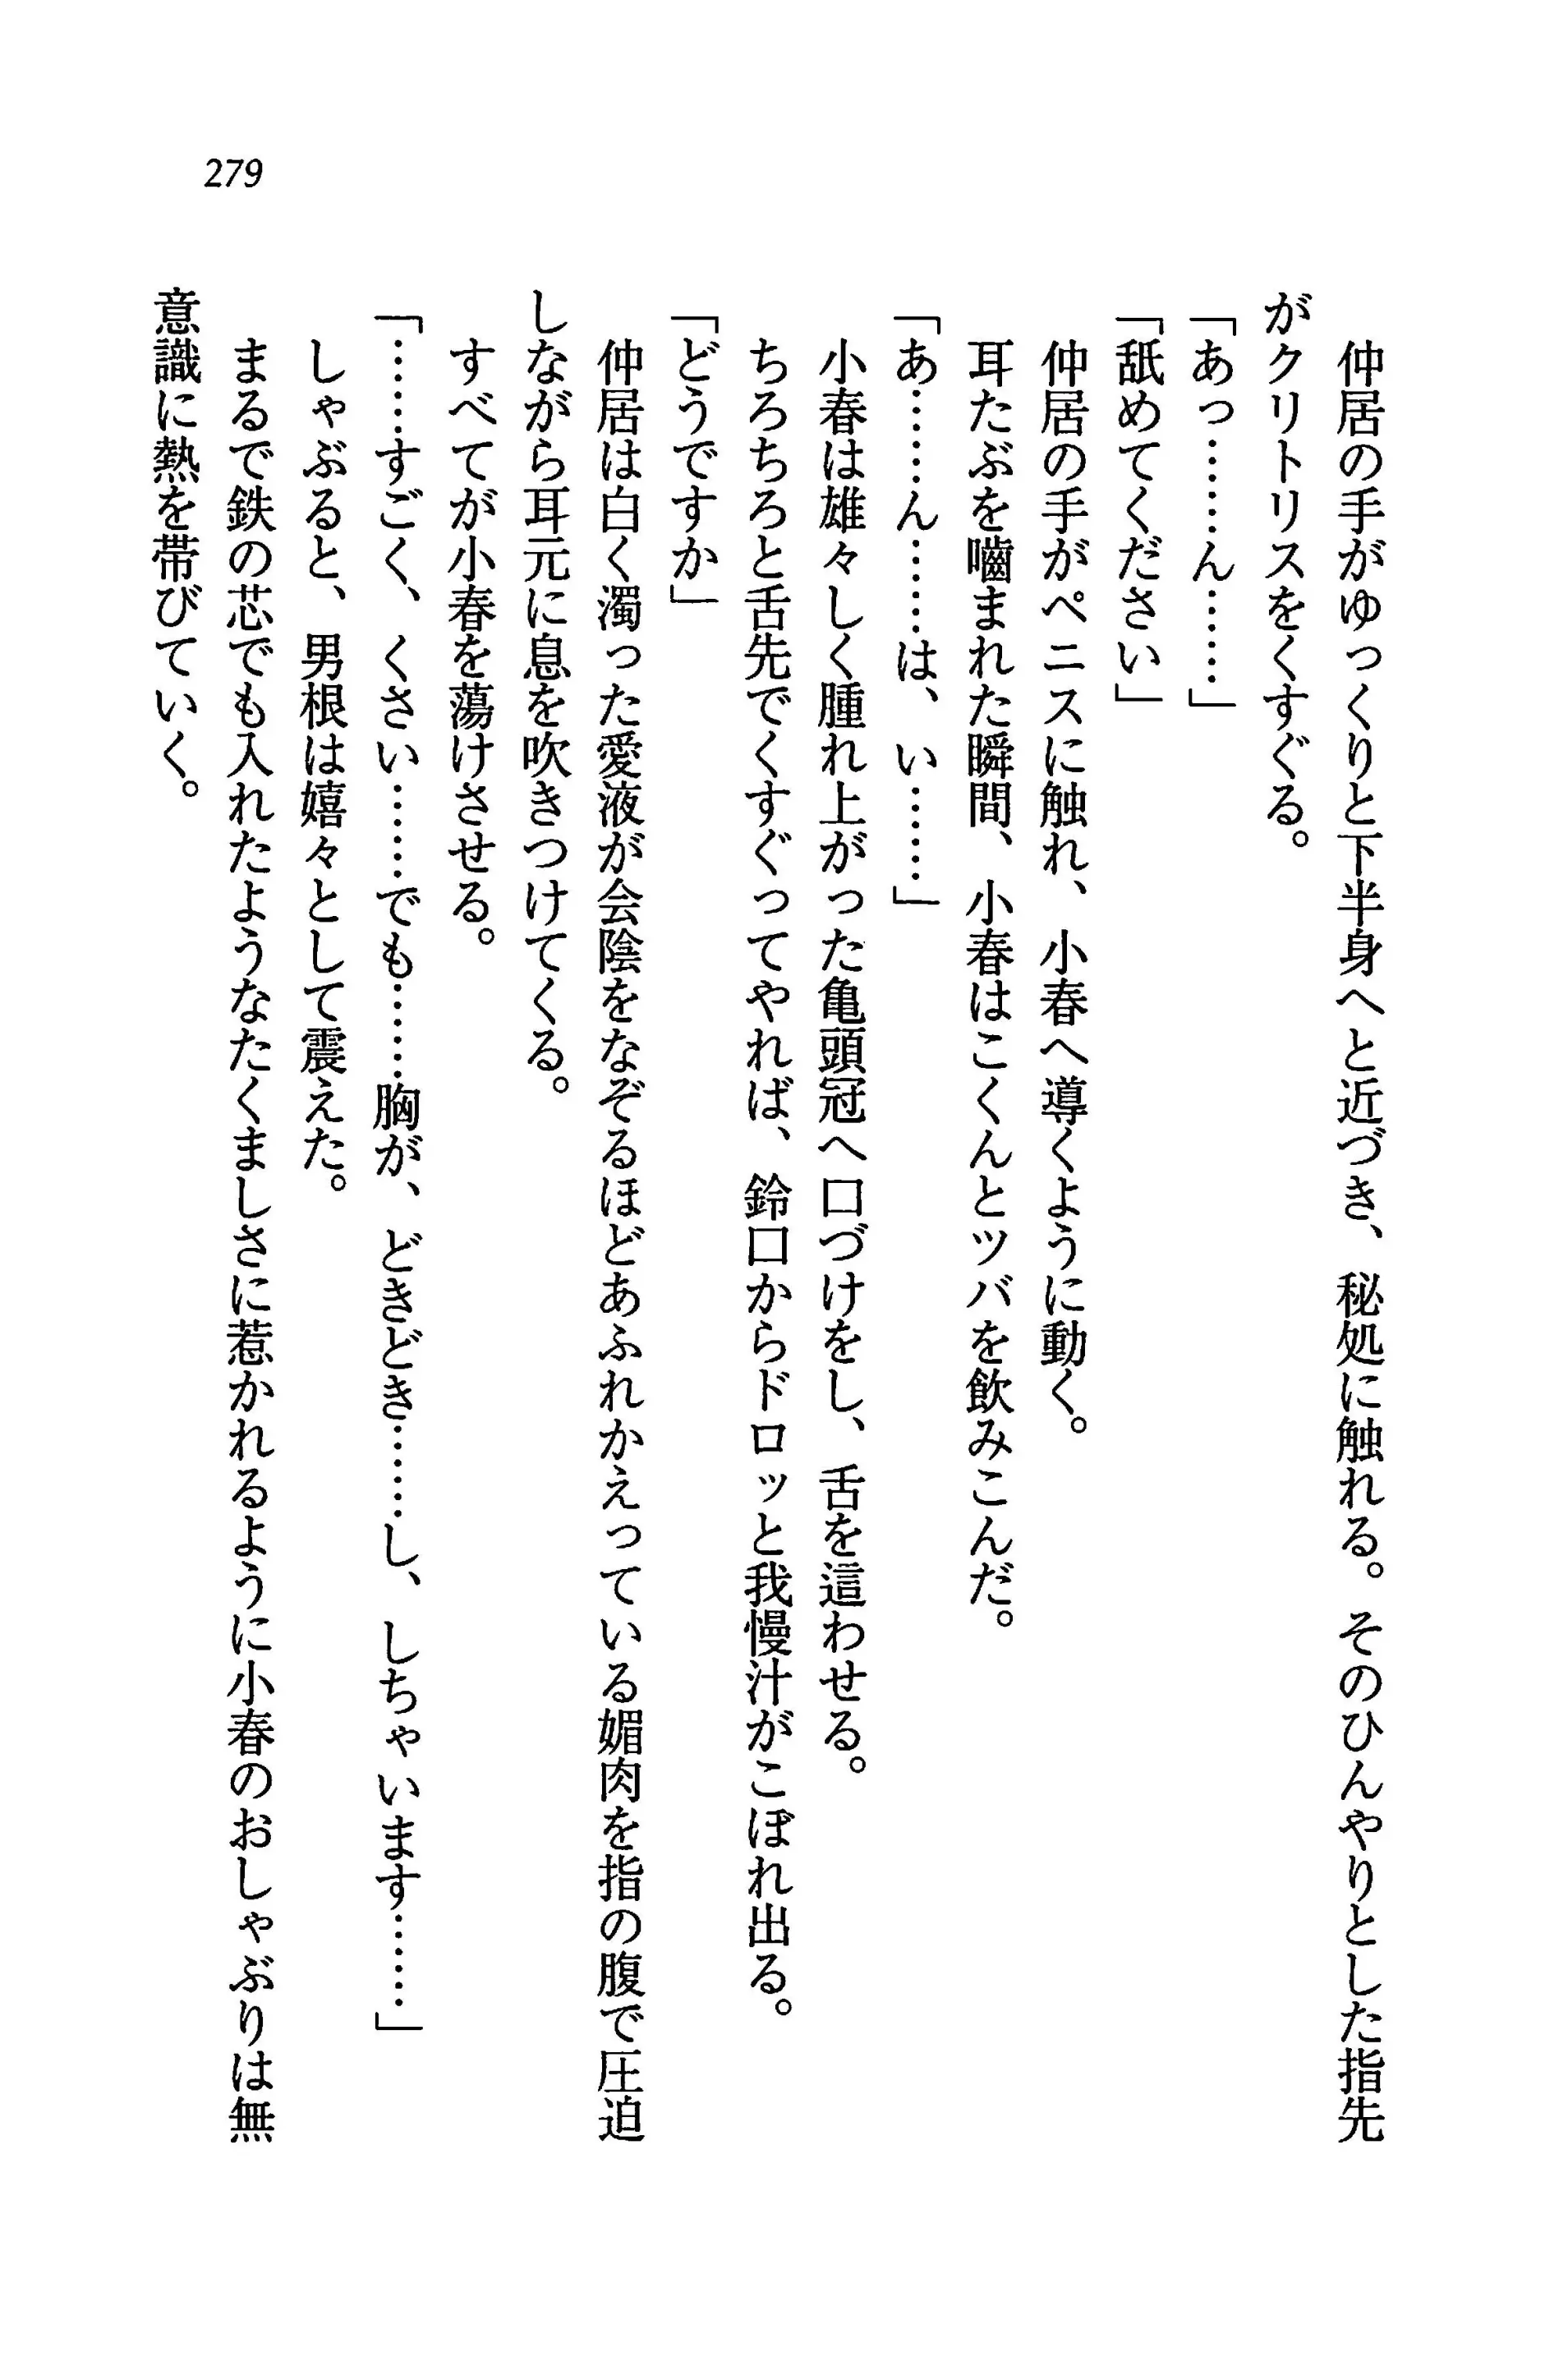 279
仲居の手がゆっくりと下半身へと近づき、秘処に触れる。そのひんやりとした指先
がクリトリスをくすぐる。
「あっ………ん………」
「舐めてください」
仲居の手がペニスに触れ、小春へ導くように動く。
耳たぶを嚙まれた瞬間、小春はこくんとツバを飲みこんだ。
「あ………ん………は、い………」
小春は雄々しく腫れ上がった亀頭冠へ口づけをし、舌を這わせる。
ちろちろと舌先でくすぐってやれば、鈴口からドロッと我慢汁がこぼれ出る。
「どうですか」
仲居は白く濁った愛液が会陰をなぞるほどあふれかえっている媚肉を指の腹で圧迫
しながら耳元に息を吹きつけてくる。
すべてが小春を蕩けさせる。
「………すごく、くさい………でも………胸が、どきどき………し、しちゃいます………」
しゃぶると、男根は嬉々として震えた。
まるで鉄の芯でも入れたようなたくましさに惹かれるように小春のおしゃぶりは無
意識に熱を帯びていく。